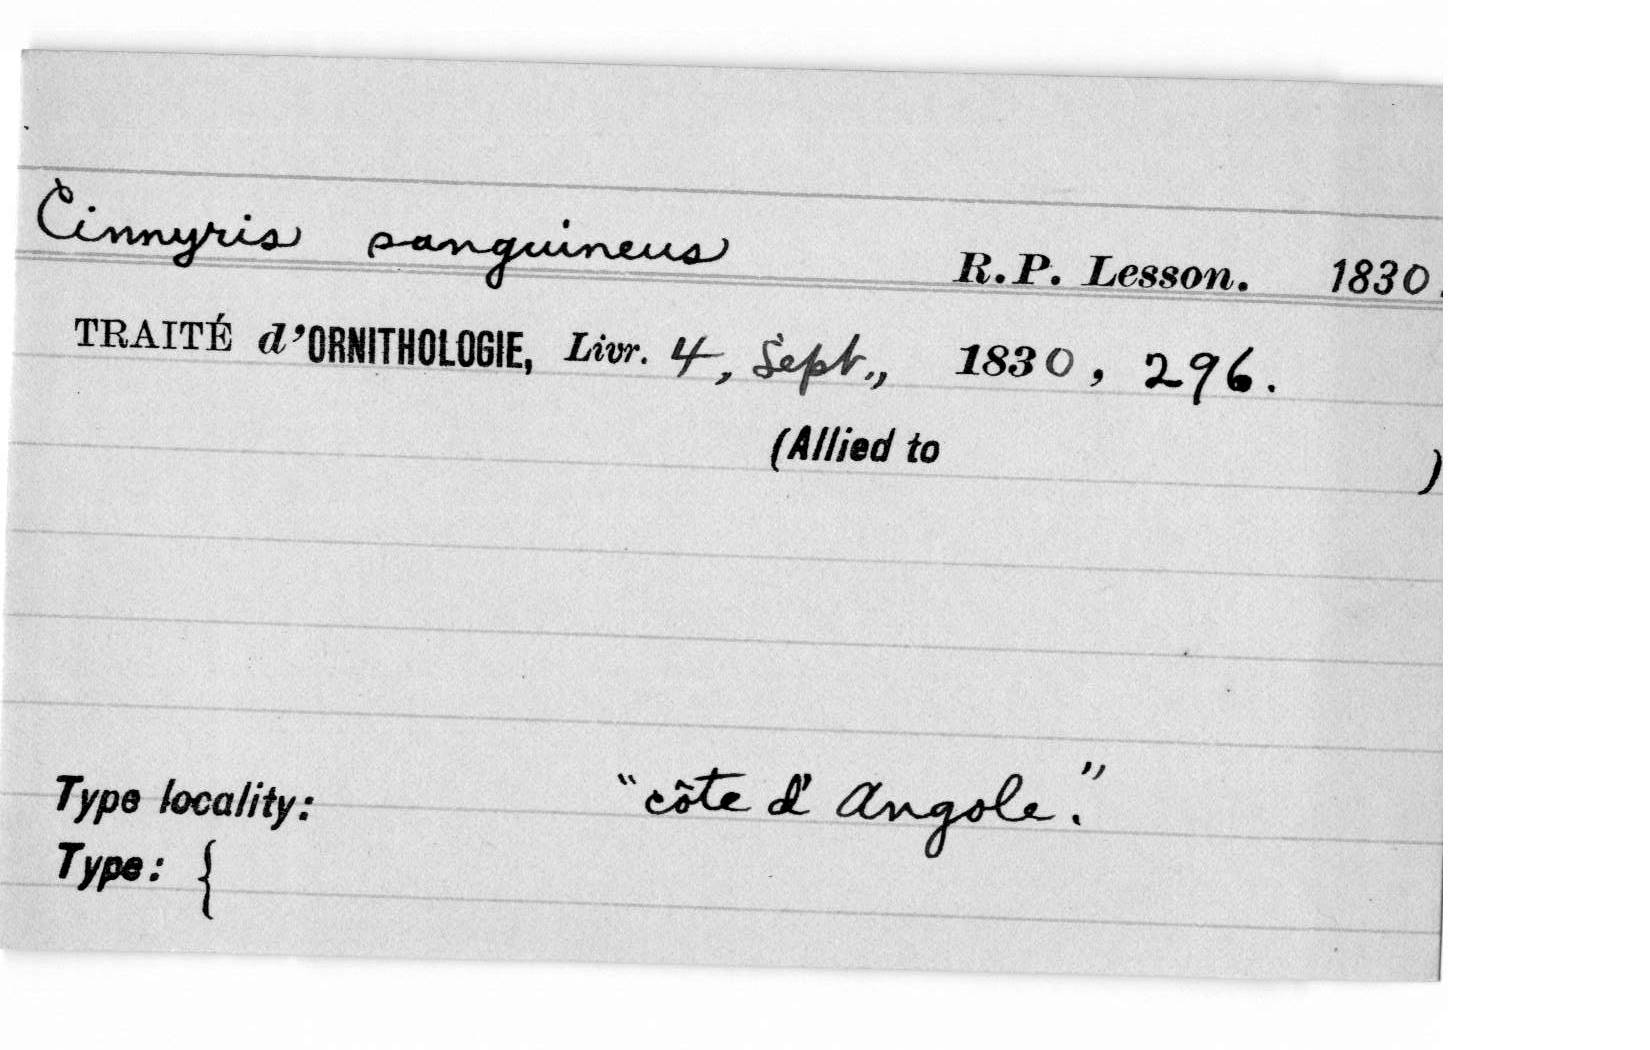 Cinnyris sanguineus R.P. Lesson. 1830.
TRAITÉ d'ORNITHOLOGIE, Livr. 4, Sept., 1830, 296.
(Allied to )
Type locality: "côte d'Angole."
Type: {